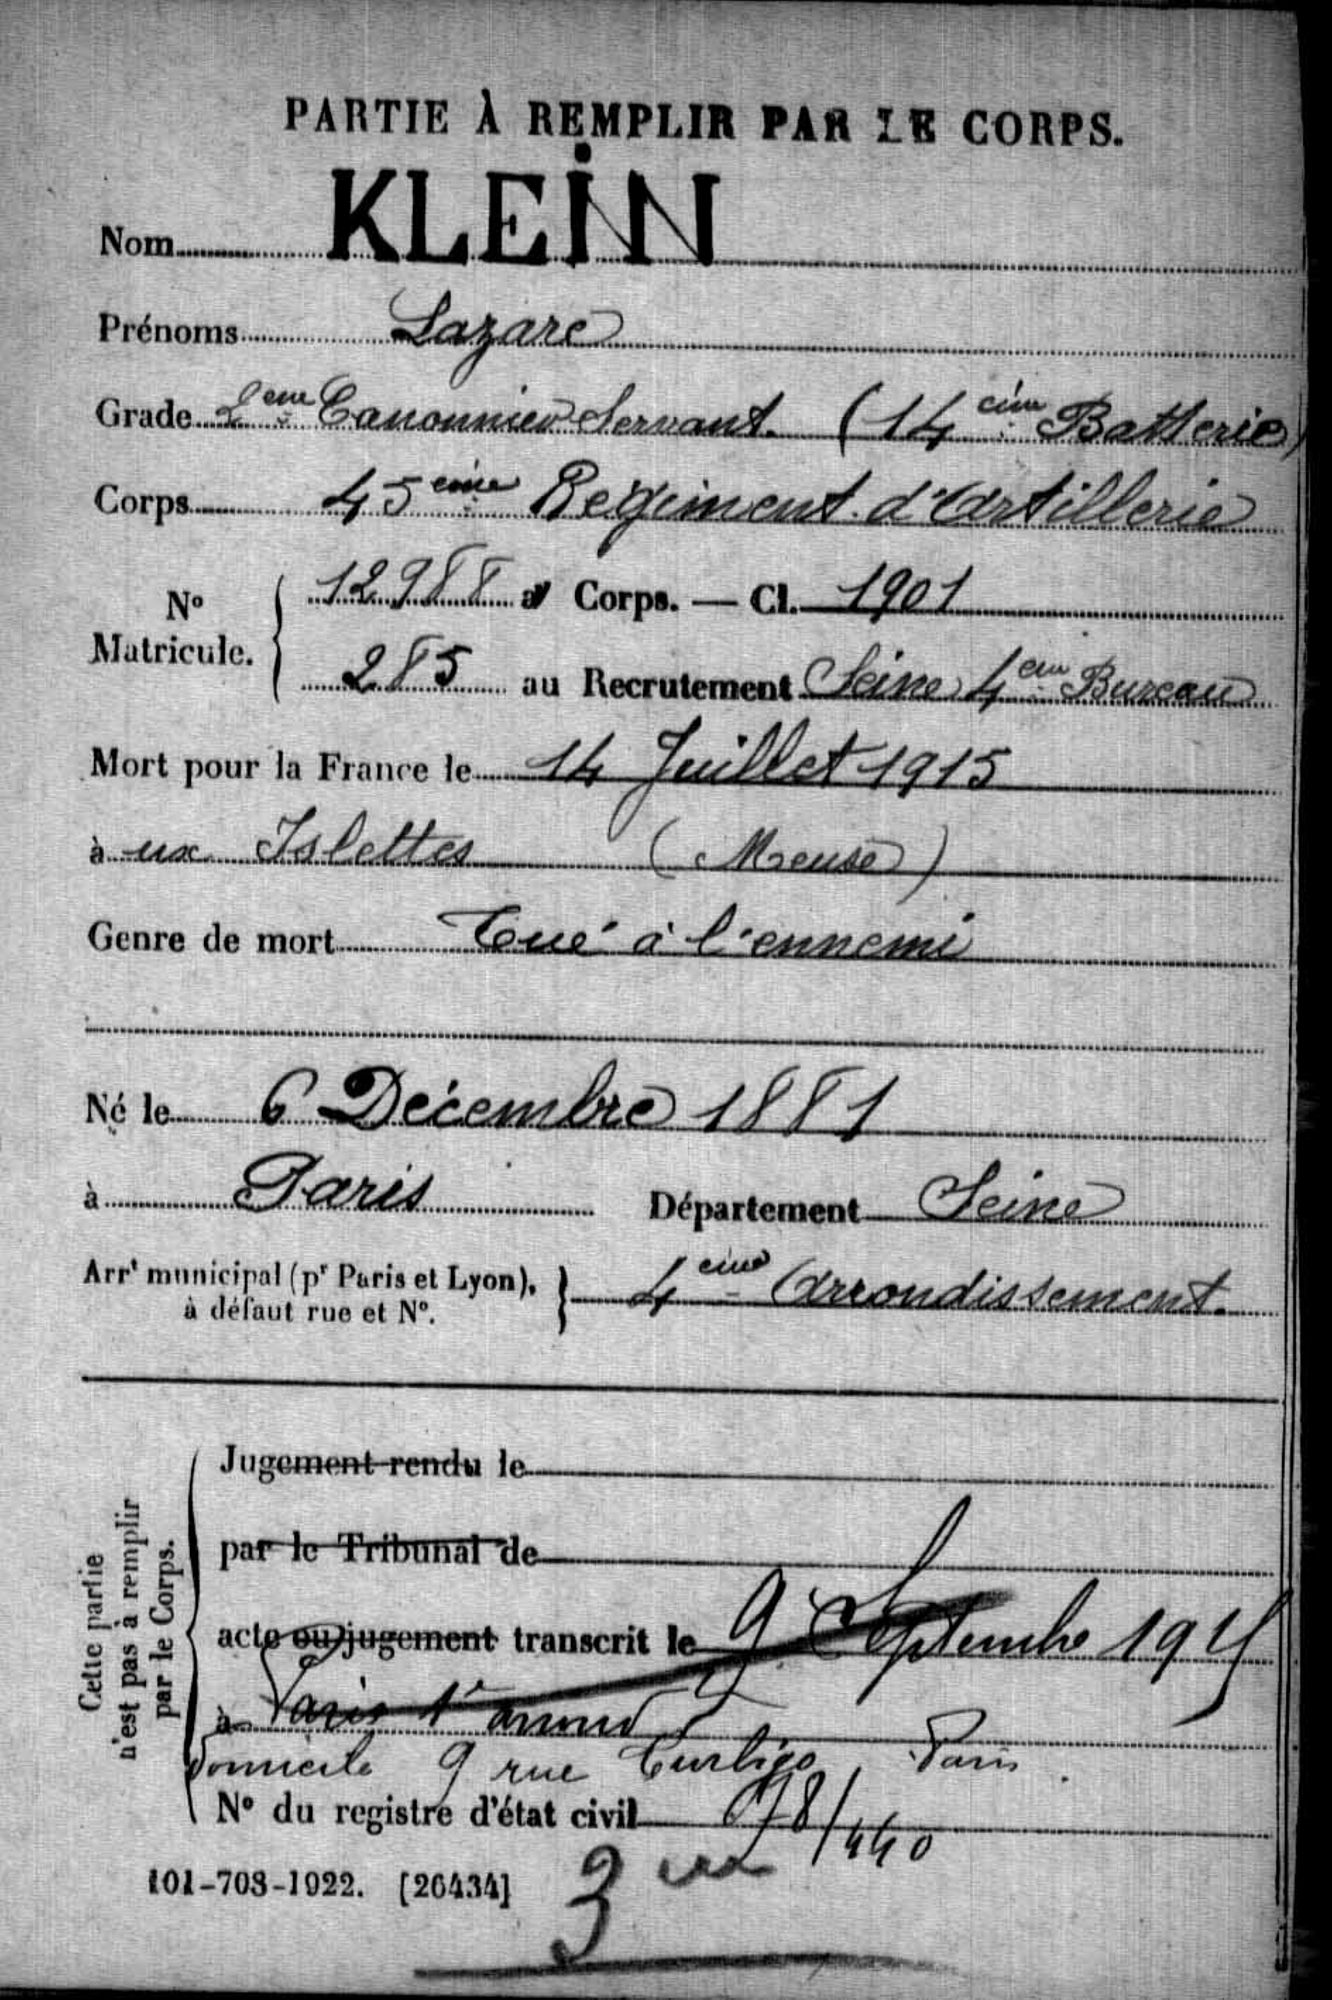 PARTIE À REMPLIR PAR LE CORPS.
Nom KLEIN
Prénoms Lazare
Grade 2eme Canonnier Servant. (14eime Batterie)
Corps 45eme Regiment d'Artillerie
No Matricule. 12988 au Corps. — Cl. 1901
285 au Recrutement Seine 4eme Bureau
Mort pour la France le 14 Juillet 1915
à ux Islettes (Meuse)
Genre de mort Tué à l'ennemi
Né le 6 Décembre 1881
à Paris Département Seine
Arrt municipal (pr Paris et Lyon), à défaut rue et No. } 4eime Arrondissement.
Cette partie n'est pas à remplir par le Corps.
Jugement rendu le
par le Tribunal de
acte ou jugement transcrit le 9 Septembre 1915
à Paris 1r arrond
Domicile 9 rue Turbigo, Paris.
No du registre d'état civil 440
101-708-1922. [26434]
3